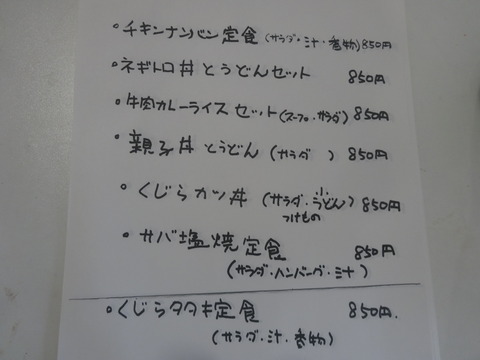 ・チキンナンバン定食(サラダ・ミ汁・香物)850円
・ネギトロ丼とうどんセット 850円
・牛肉カレーライスセット(スープ・サラダ)850円
・親子丼とうどん(サラダ )850円
・くじらカツ丼(サラダ・小うどん)850円
つけもの
・サバ塩焼定食 850円
(サラダ・ハンバーグ・ミ汁)
・くじらタタキ定食 850円.
(サラダ・汁・香物)